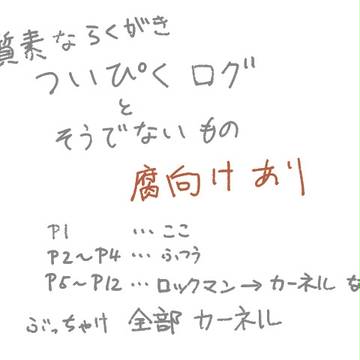 質素ならくがき
ついぴくログ
と
そうでないもの
腐向けあり
P1 … ここ
P2〜P4 … ふつう
P5〜P12 … ロックマン→カーネル な
ぶっちゃけ 全部 カーネル